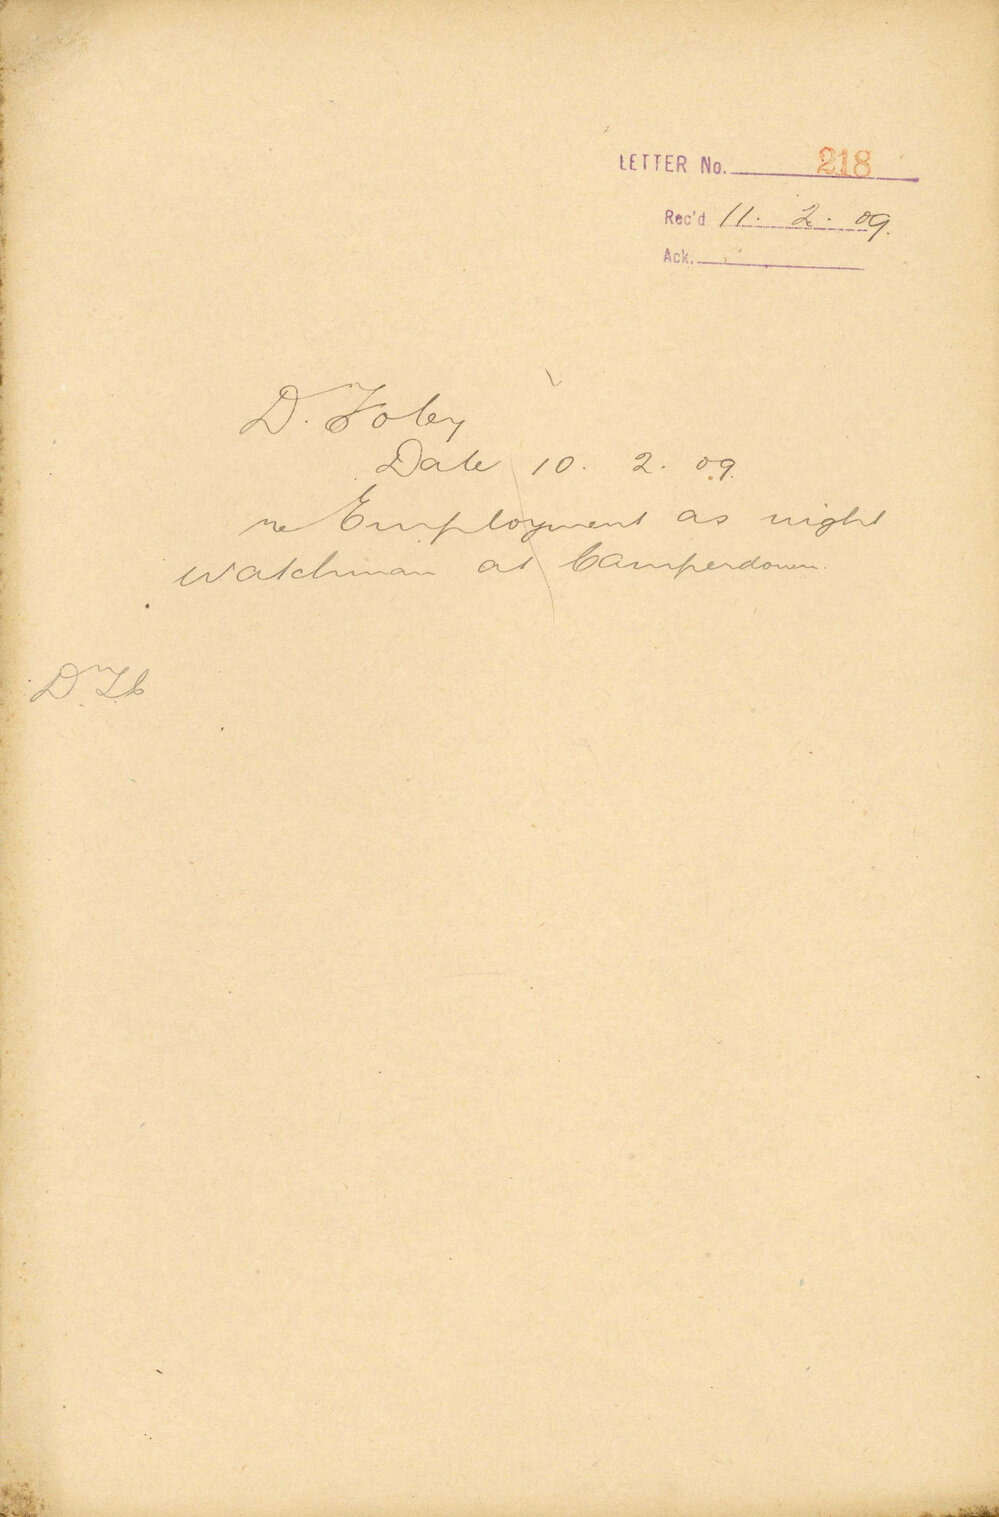 LETTER No. 218
Rec'd 11. 2. 09.
Ack.
D. Foley
Date 10. 2. 09.
re Employment as night
Watchman at Camperdown.